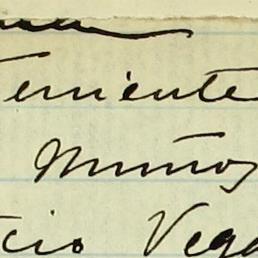 Teniente
Muños
cio Vega